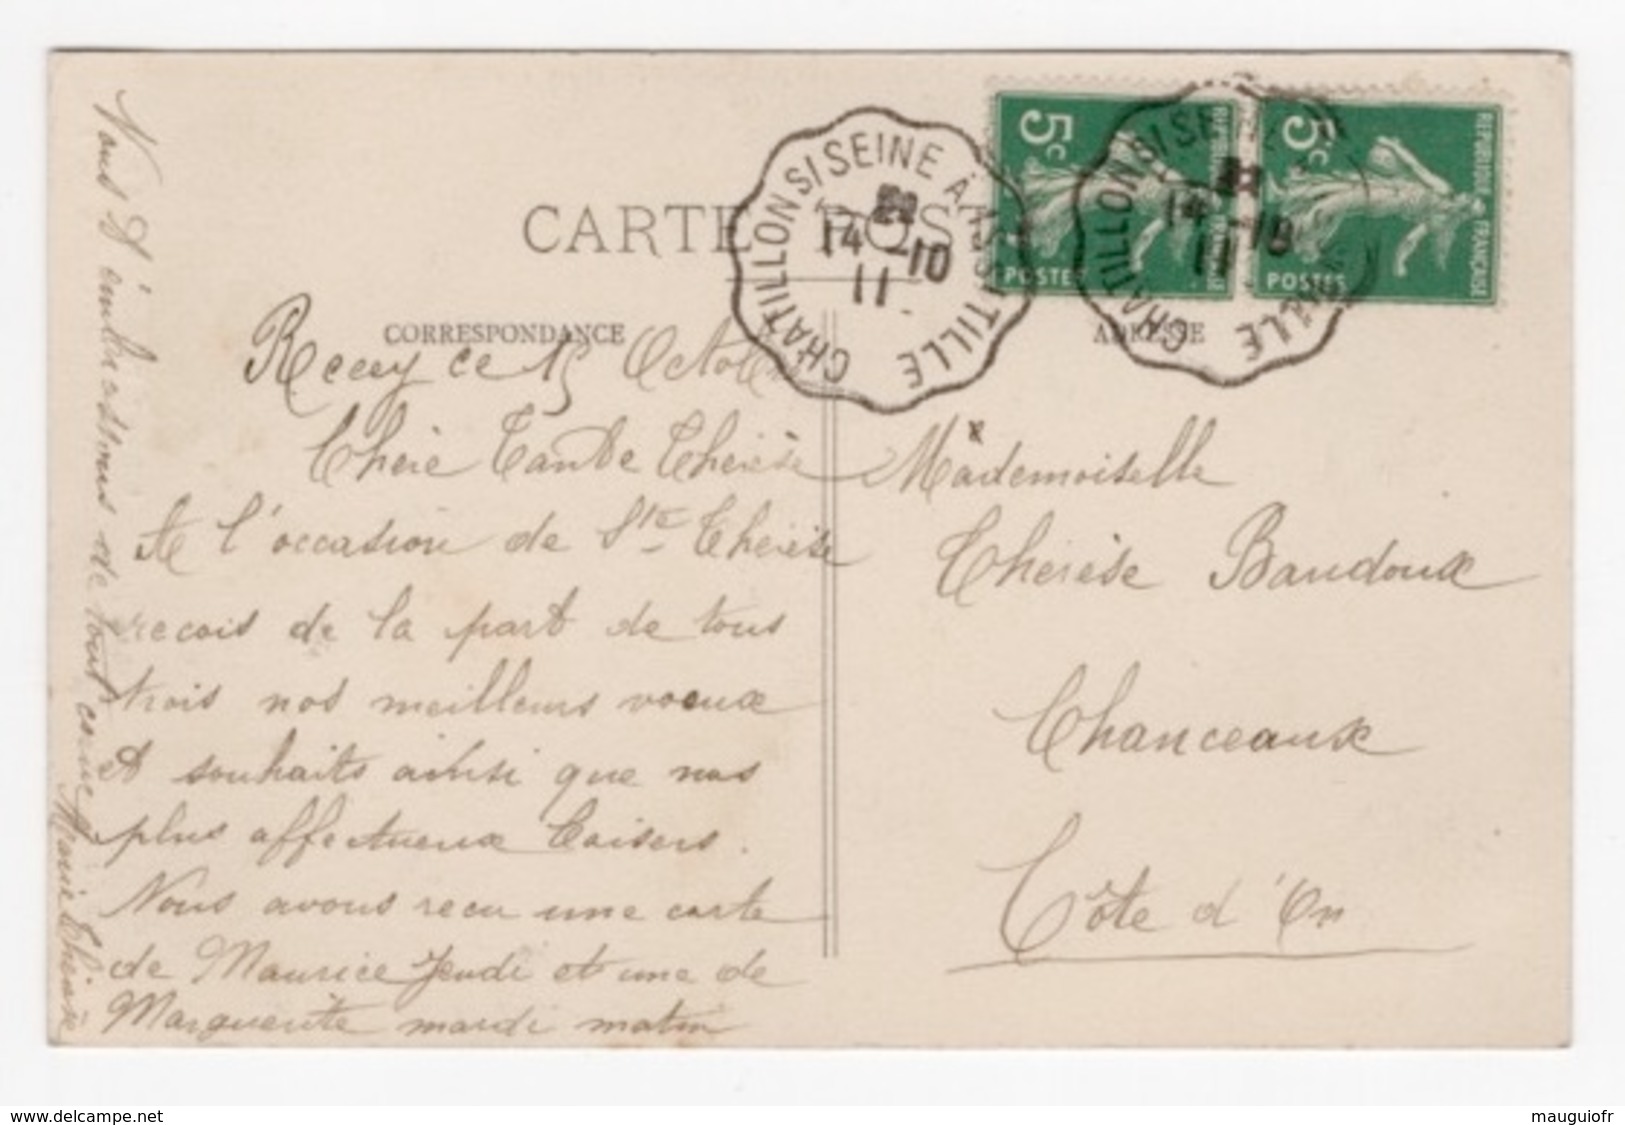 CARTE POSTALE
CORRESPONDANCE
ADRESSE
CHATILLON S/ SEINE À IS S/ TILLE
14 -10
11
CHATILLON S/ SEINE
14 -10
11
5c
POSTES
REPUBLIQUE FRANÇAISE
5c
POSTES
REPUBLIQUE FRANÇAISE
Recey ce 15 Octobre
Chère Tante Thérèse
A l'occasion de Ste Thérèse
recois de la part de tous
trois nos meilleurs voeux
et souhaits ainsi que nos
plus affectueux baisers.
Nous avons recu une carte
de Maurice Jeudi et une de
Marguerite mardi matin
Tous t'embrassons de tout coeur
Marie Thérèse
Mademoiselle
Thérèse Baudoux
Chanceaux
Côte d'Or
www.delcampe.net
mauguiofr